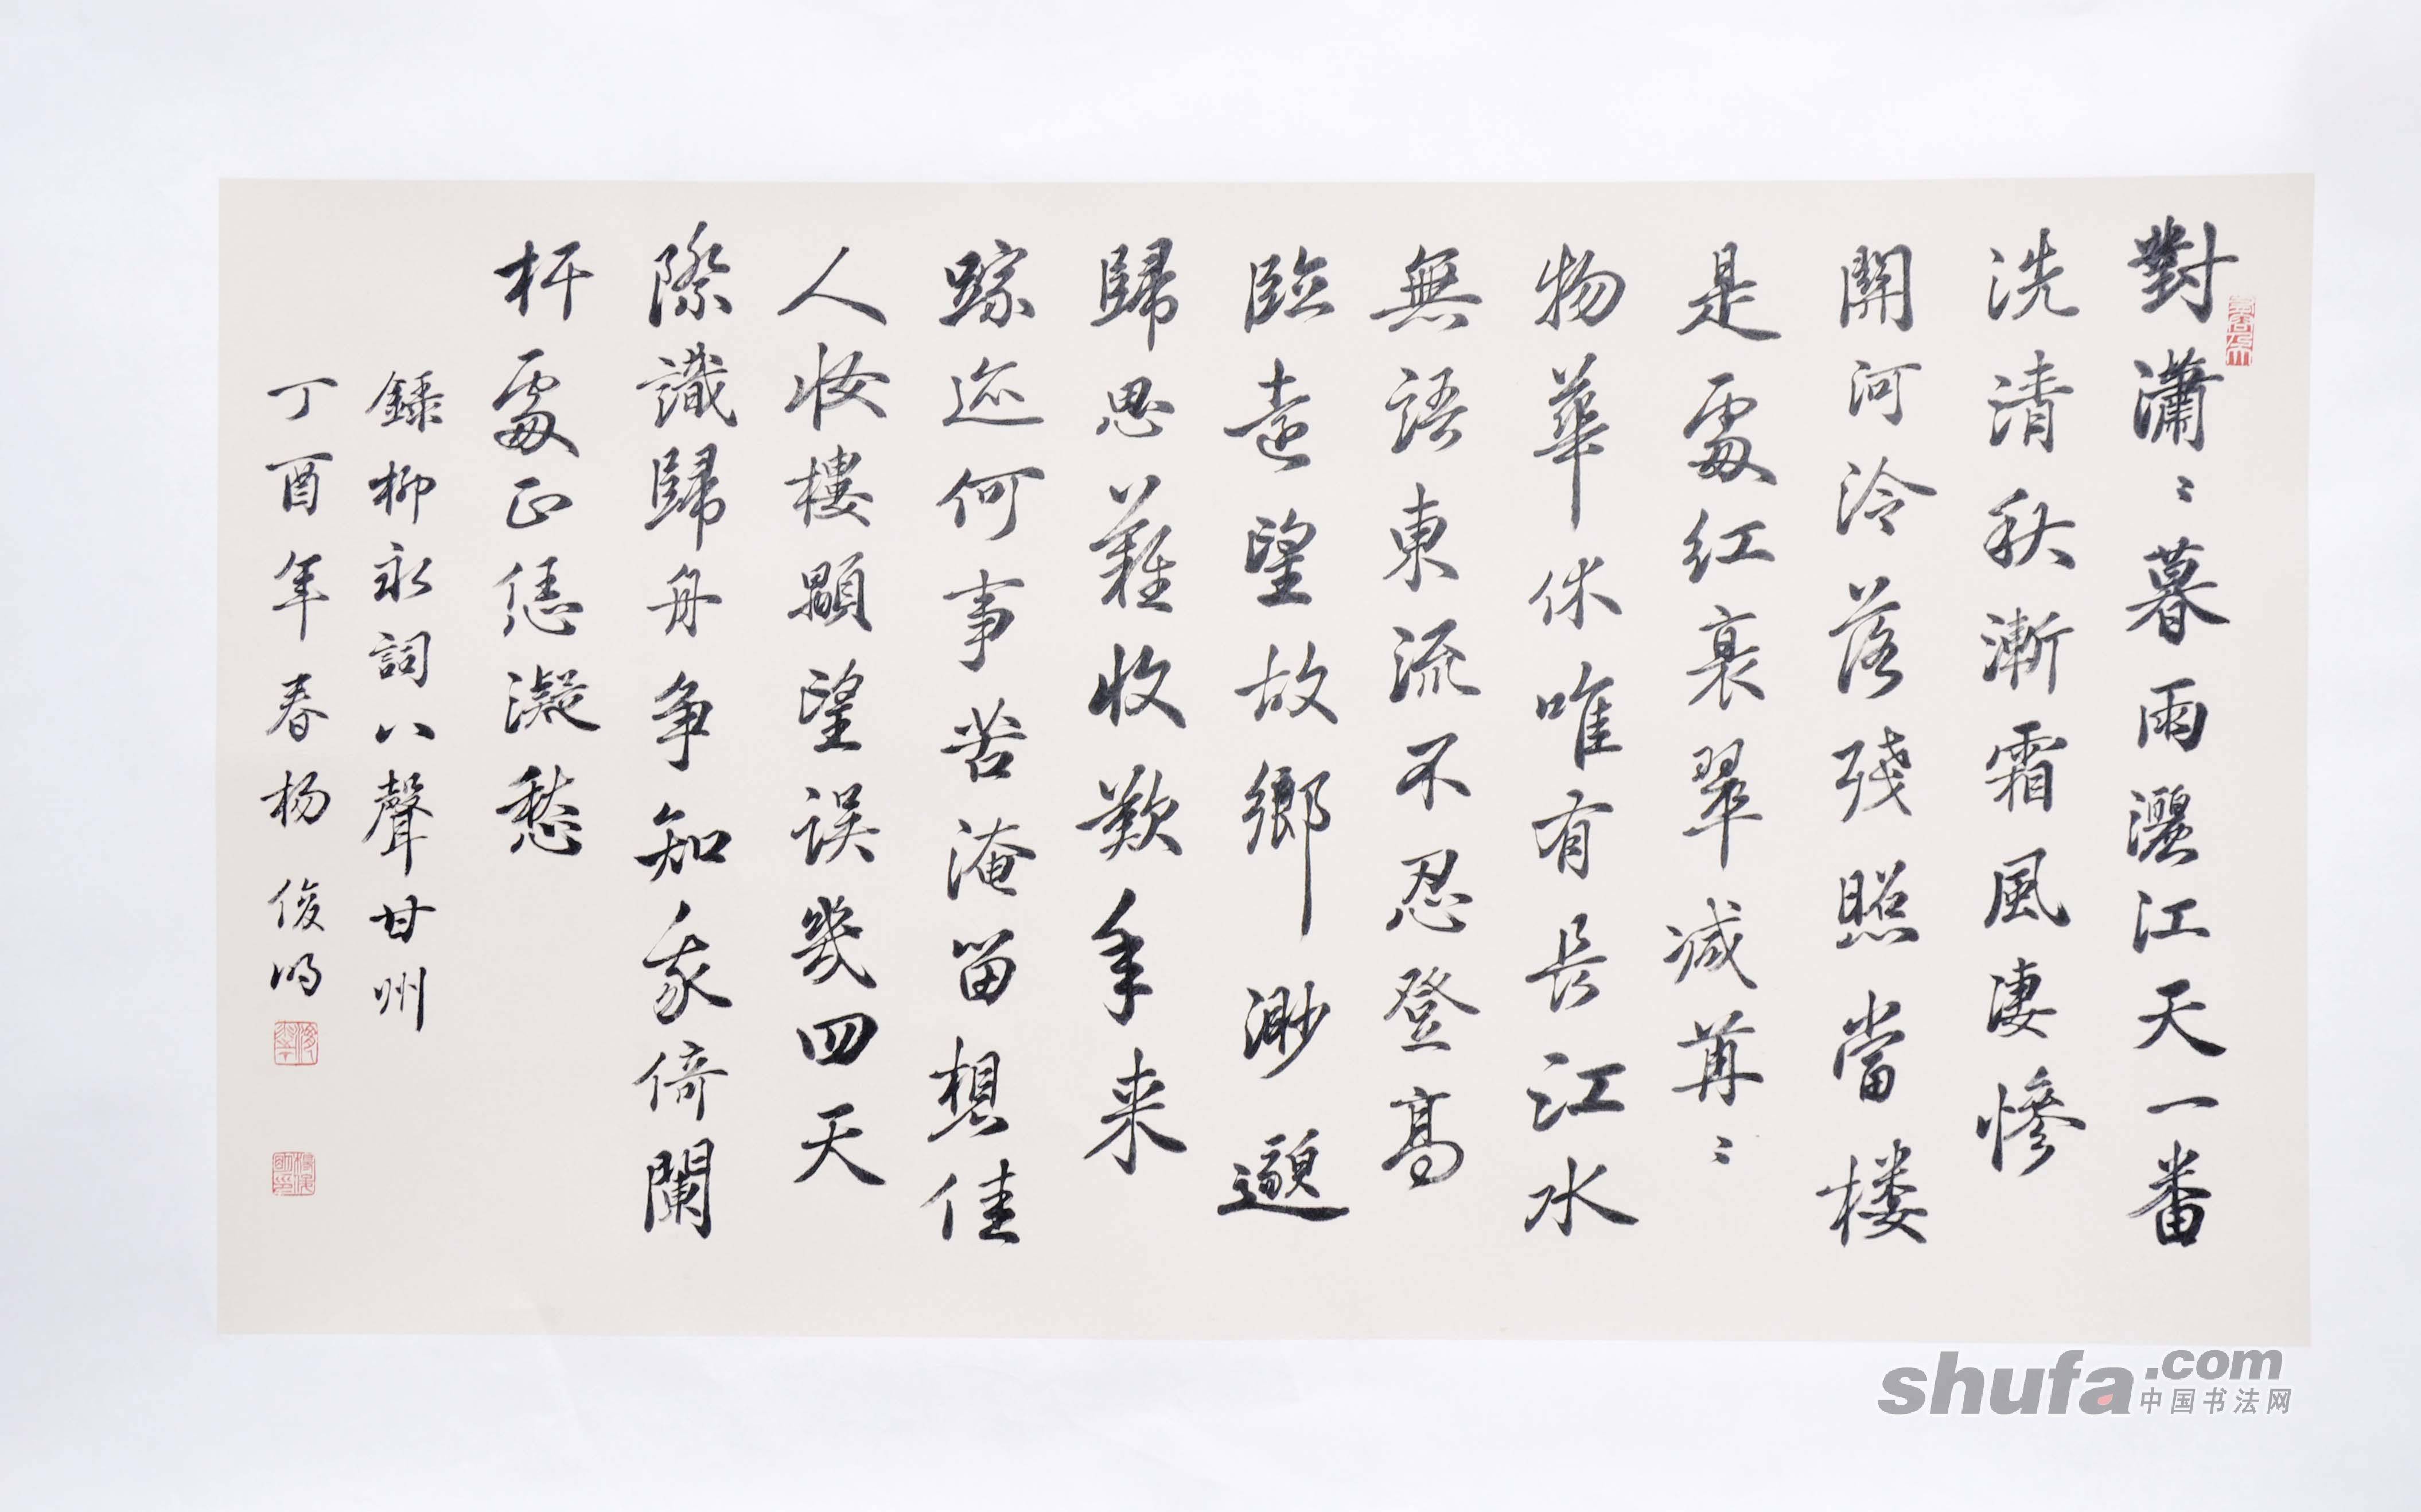 對瀟〻暮雨灑江天一番
洗清秋漸霜風凄惨
關河泠落殘照當楼
是處红衰翠减苒〻
物華休唯有長江水
無語東流不忍登高
臨遠望故鄉渺邈
歸思難收歎年来
踪迹何事苦淹留想佳
人妝樓顒望误幾四天
際識歸舟争知我倚闌
杆處正恁凝愁
錄柳永詞八聲甘州
丁酉年春杨俊明
shufa.com
中国书法网